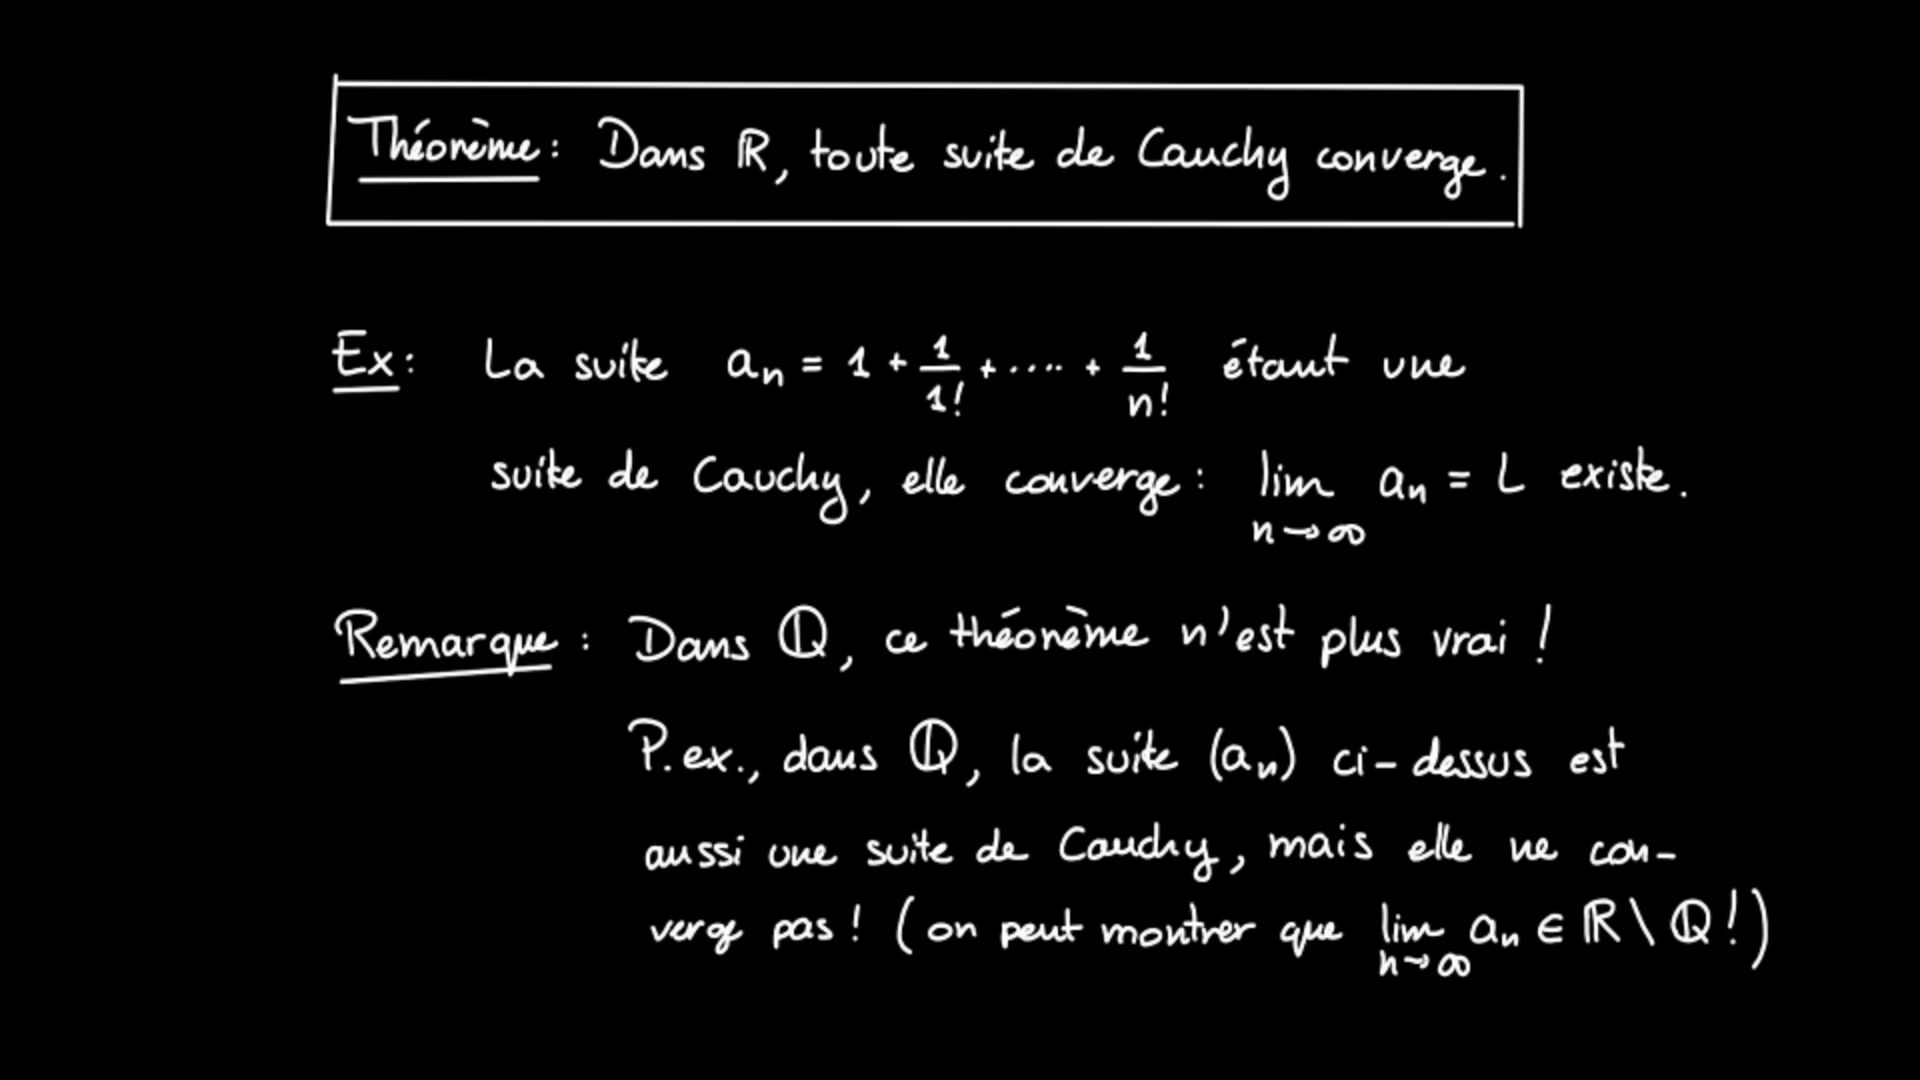 Théorème : Dans ℝ, toute suite de Cauchy converge.
Ex : La suite aₙ = 1 + 1/1! + .... + 1/n! étant une
suite de Cauchy, elle converge : lim n→∞ aₙ = L existe.
Remarque : Dans ℚ, ce théorème n'est plus vrai !
P. ex., dans ℚ, la suite (aₙ) ci-dessus est
aussi une suite de Cauchy, mais elle ne con-
verge pas ! (on peut montrer que lim n→∞ aₙ ∈ ℝ \ ℚ !)